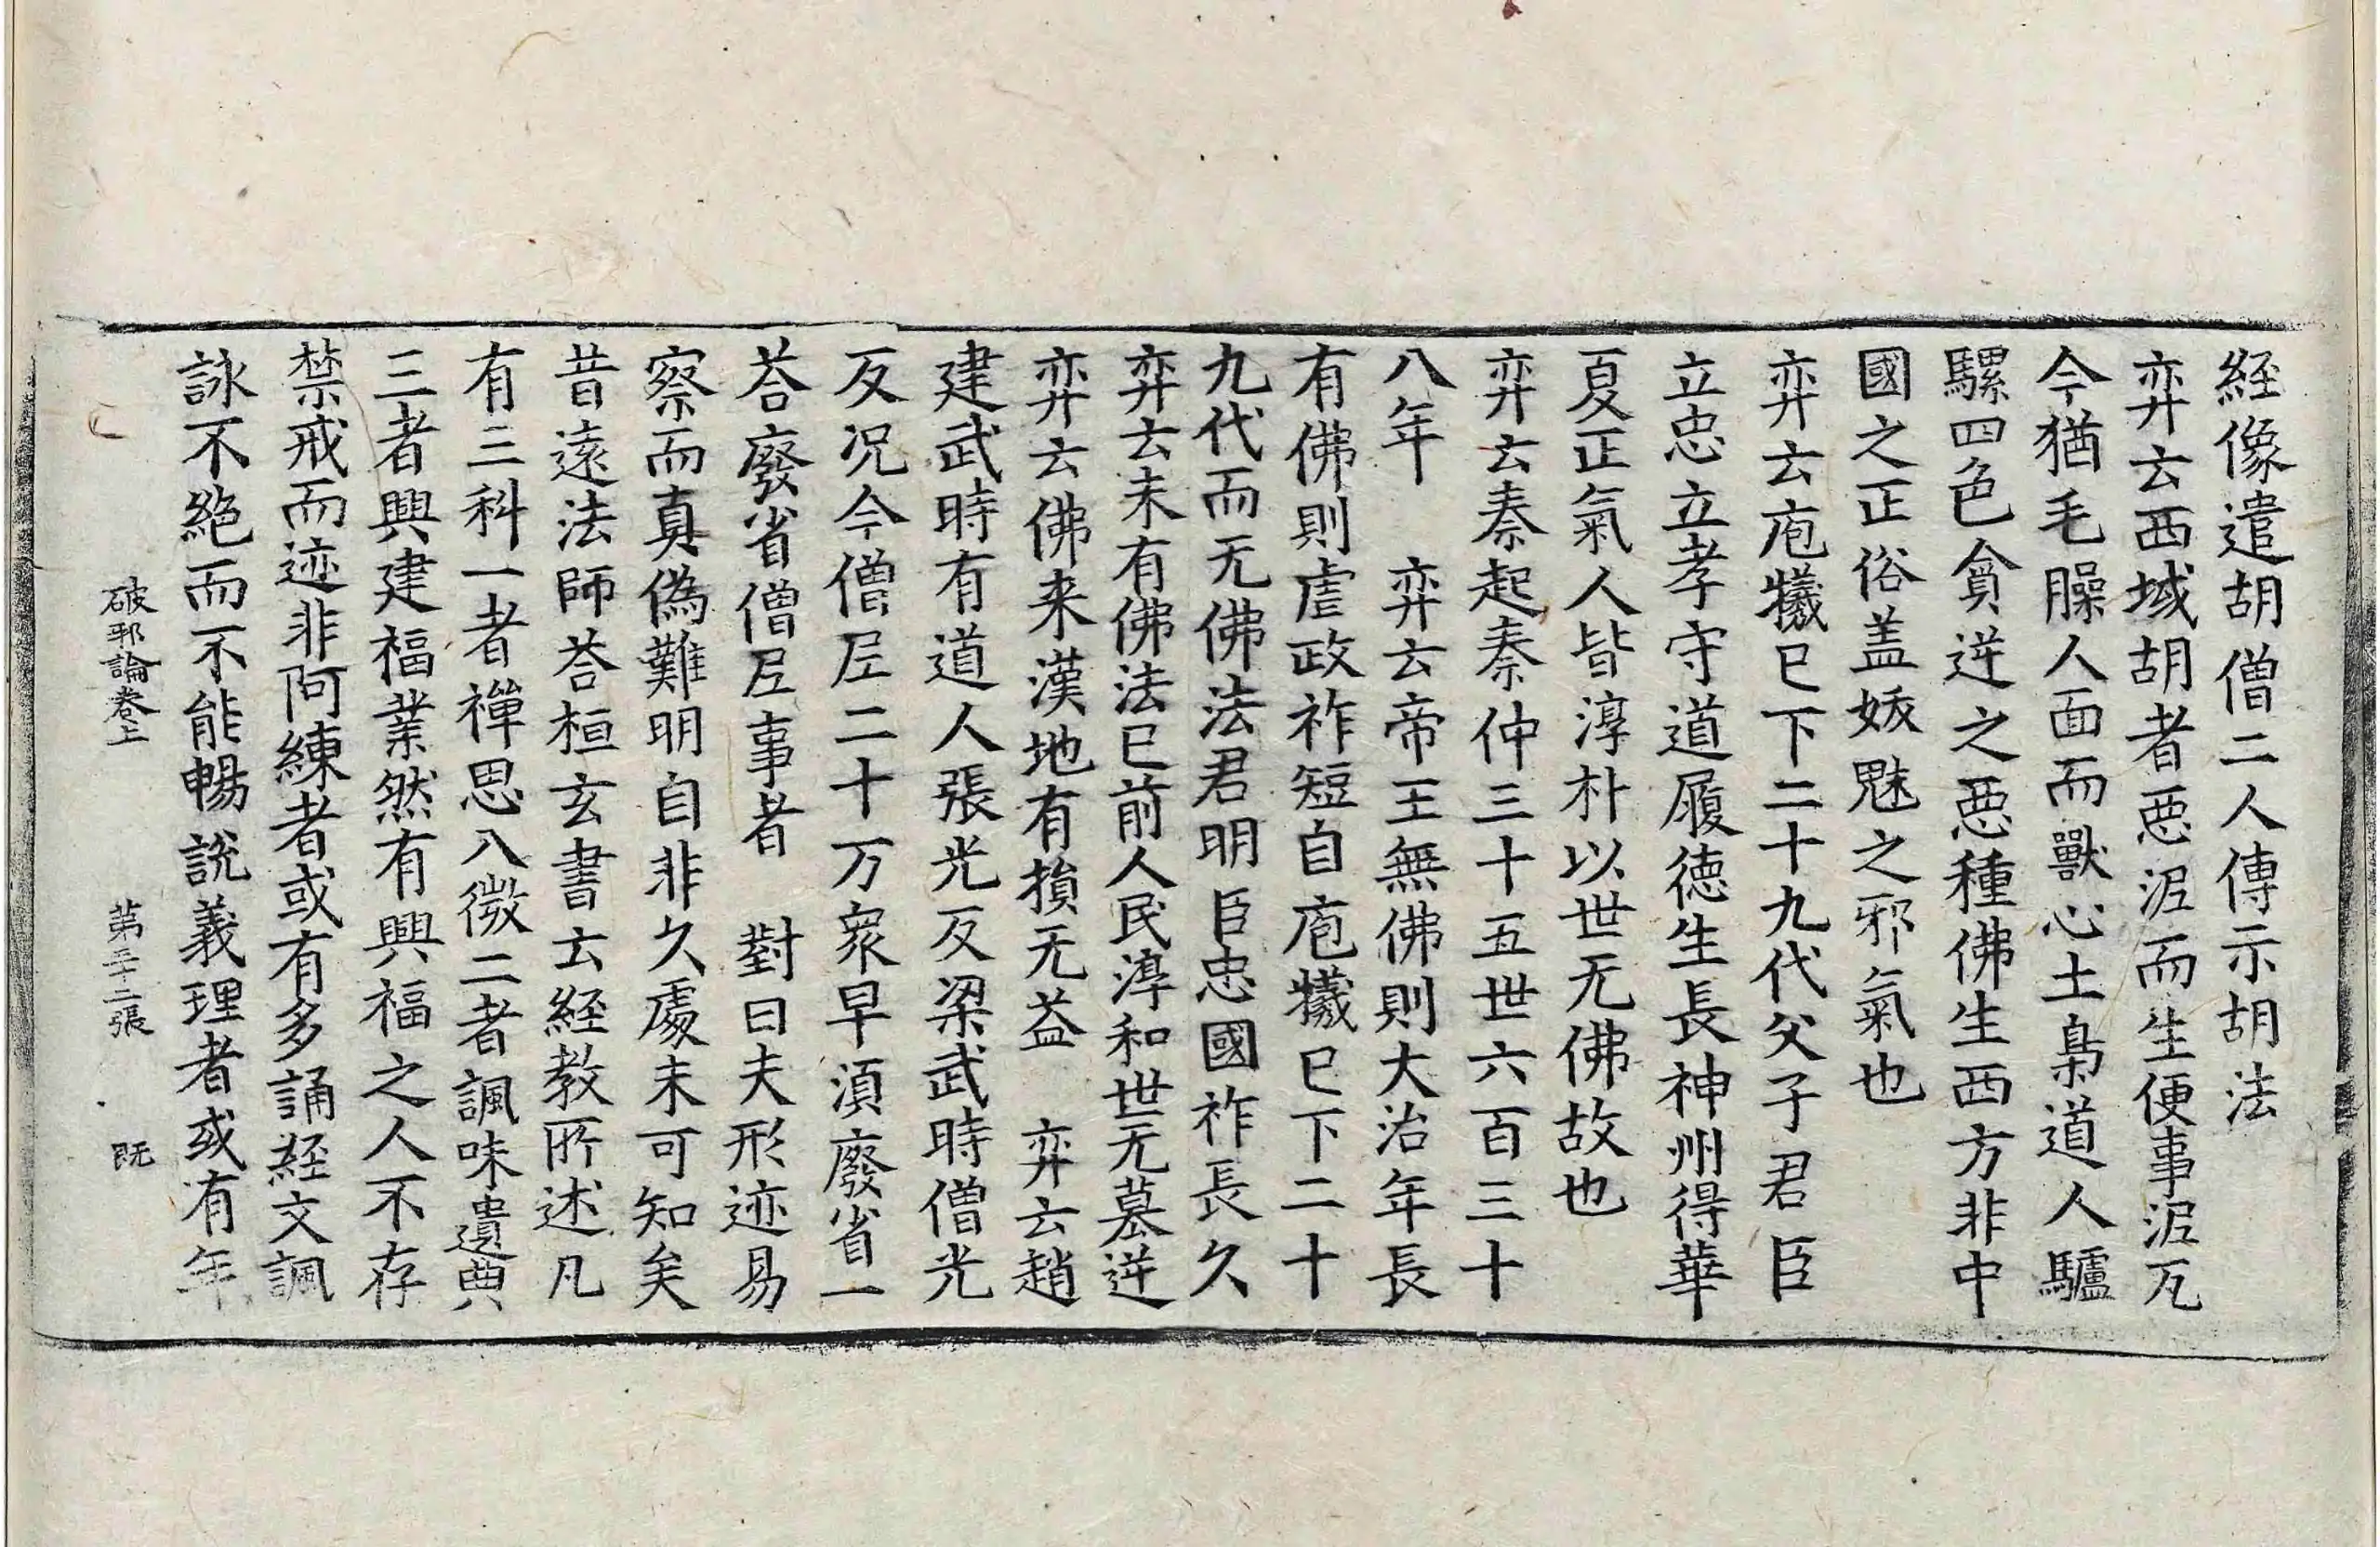 経像遣胡僧二人傳示胡法
弈云西域胡者惡泥而生便事泥瓦
今猶毛臊人面而獸心土梟道人驢
騾四色貪逆之惡種佛生西方非中
國之正俗盖妖魅之邪氣也
弈云庖犧已下二十九代父子君臣
立忠立孝守道履德生長神州得華
夏正氣人皆淳朴以世无佛故也
弈云秦起秦仲三十五世六百三十
八年　弈云帝王無佛則大治年長
有佛則虐政祚短自庖犧已下二十
九代而无佛法君明臣忠國祚長久
弈云未有佛法已前人民淳和世无篡逆
弈云佛来漢地有損无益　弈云趙
建武時有道人張光反梁武時僧光
反况今僧尼二十万衆早湏廢省一
荅廢省僧尼事者　對曰夫形迹易
察而真偽難明自非久處未可知矣
昔遠法師荅桓玄書云経教所述凡
有三科一者禪思入微二者諷味遺典
三者興建福業然有興福之人不存
禁戒而迹非阿練者或有多誦経文諷
詠不絶而不能暢說義理者或有年
破邪論卷上　第三十二張　既